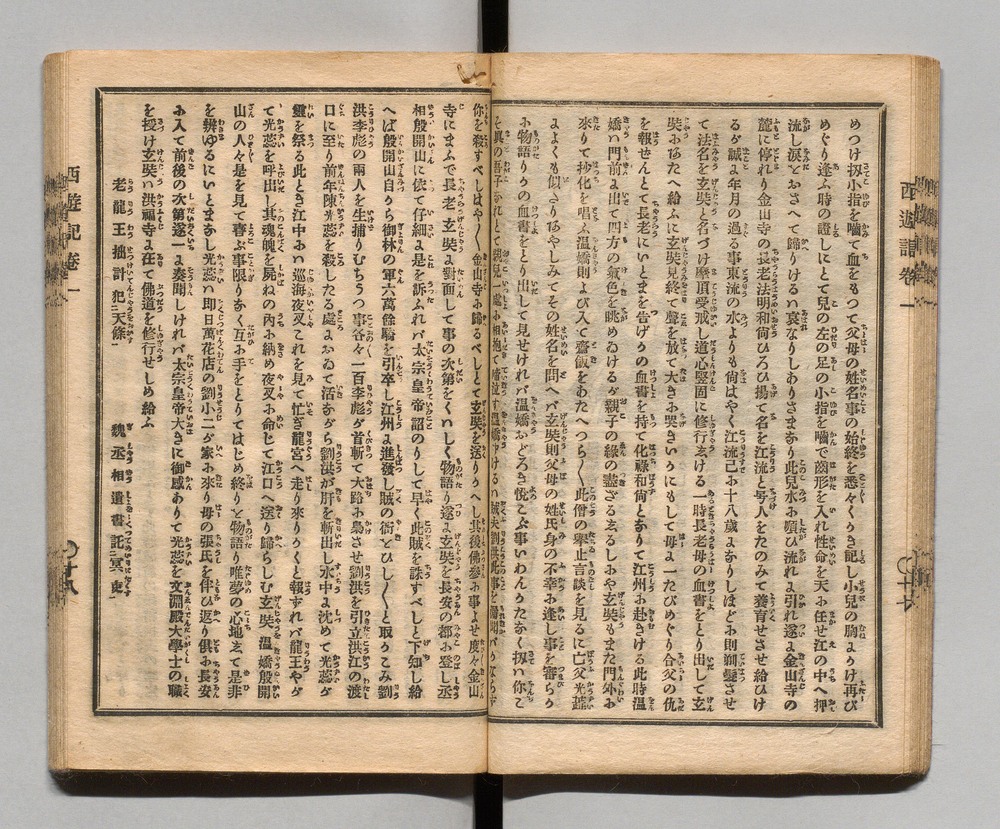 西遊記卷一
めつけ扨小指を嚙て血をもつて父母の姓名事の始終を悉々くかき記し小兒の胸よりけ再び
めぐり逢ふ時の證しにとて兒の左の足の小指を嚙で齒形を入れ性命を天お任せ江の中へ押
流し淚とおさへて歸りけるハ哀なりしありさまあり此兒水お順ひ流れよ引れ遂よ金山寺の
麓に停れり金山寺の長老法明和尙ひろひ揚て名を江流と号人をたのみて養育せさせ給ひけ
るが誠よ年月の過る事東流の水よりも尙はやく江流己お十八歲よありしほどお則剃髮させ
て法名を玄奘と名づけ摩頂受戒し道心堅固に修行玄ける一時長老母の血書をとり出して玄
奘おあたへ給ふに玄奘見終て聲を放て大きお哭きいうにもして母よ一たびめぐり合父の仇
を報せんとて長老にいとまを告げかの血書を持て化祿和尙とありて江州お赴きける此時溫
嬌ハ門前よ出て四方の氣色を眺めゐけるが親子の緣の盡ざるゑるしおや玄奘もまた門外お
來りて抄化を唱ふ溫嬌則よび入て齋飯をあたへつら〳〵此僧の擧止言談を見るに亡父光蕊
よよくも似たりあやしみてその姓名を問へバ玄奘則父母の姓氏身の不幸お逢し事を審らか
お物語りかの血書をとり出して見せけれバ溫嬌おどろき悅こぶ事いわんかたあく扨ハ你こ
そ眞の吾子あれとて親兒一處お相抱て啼泣す溫嬌申けるハ賊夫劉洪此事を
你を殺すべしはや〳〵金山寺お歸るべしとて玄奘を送りかへし其後佛參お事よせ度々金山
寺にまふで長老玄奘よ對面して事の次第をくハしく物語り遂よ玄奘を長安の都お登し丞
相殷開山に依て仔細よ是を訴ふれバ太宗皇帝詔のりして早く此賊を誅すべしと下知し給
へば殷開山自から御林の軍六萬餘騎を引卒し江州よ進發し賊の衙とひし〳〵と取かこみ劉
洪李彪の兩人を生捕りむちうつ事各々一百李彪が首斬て大路お梟させ劉洪を引立洪江の渡
口に至り前年陳光蕊を殺したる處よおゐて活ながら劉洪が肝を斬出し水中よ沈めて光蕊が
靈を祭る此とき江中おハ巡海夜叉これを見て忙ぎ龍宮へ走り來りかくと報ずれバ龍王やが
て光蕊を呼出し其魂魄を屍ねの內お納め夜叉お命じて江口へ送り歸らしむ玄奘溫嬌殷開
山の人々是を見て喜ぶ事限りあく互お手をとりてはじめ終りと物語り唯夢の心地玄て是非
を辨ゆるにいとまあし光蕊ハ即日萬花店の劉小二が家お來り母の張氏を伴ひ返り俱お長安
お入て前後の次第逐一よ奏聞しけれバ太宗皇帝大きに御感ありて光蕊を文淵殿大學士の職
を授け玄奘ハ洪福寺よ在て佛道を修行せしめ給ふ
老龍王拙計犯天條　魏丞相遺書託冥吏
西遊記卷一